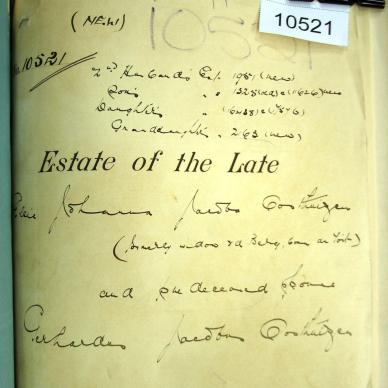 10521
(NEW)
10521
10521
2nd Husband's Est. 1981 (new)
Son's " 1328 (new)
Daughter's "
Granddaughter's " 263 (new)
Estate of the Late
Johanna Jacoba Oosthuizen
(formerly widow v d Berg, born du Toit)
and pre deceased spouse
Gerhardus Jacobus Oosthuizen